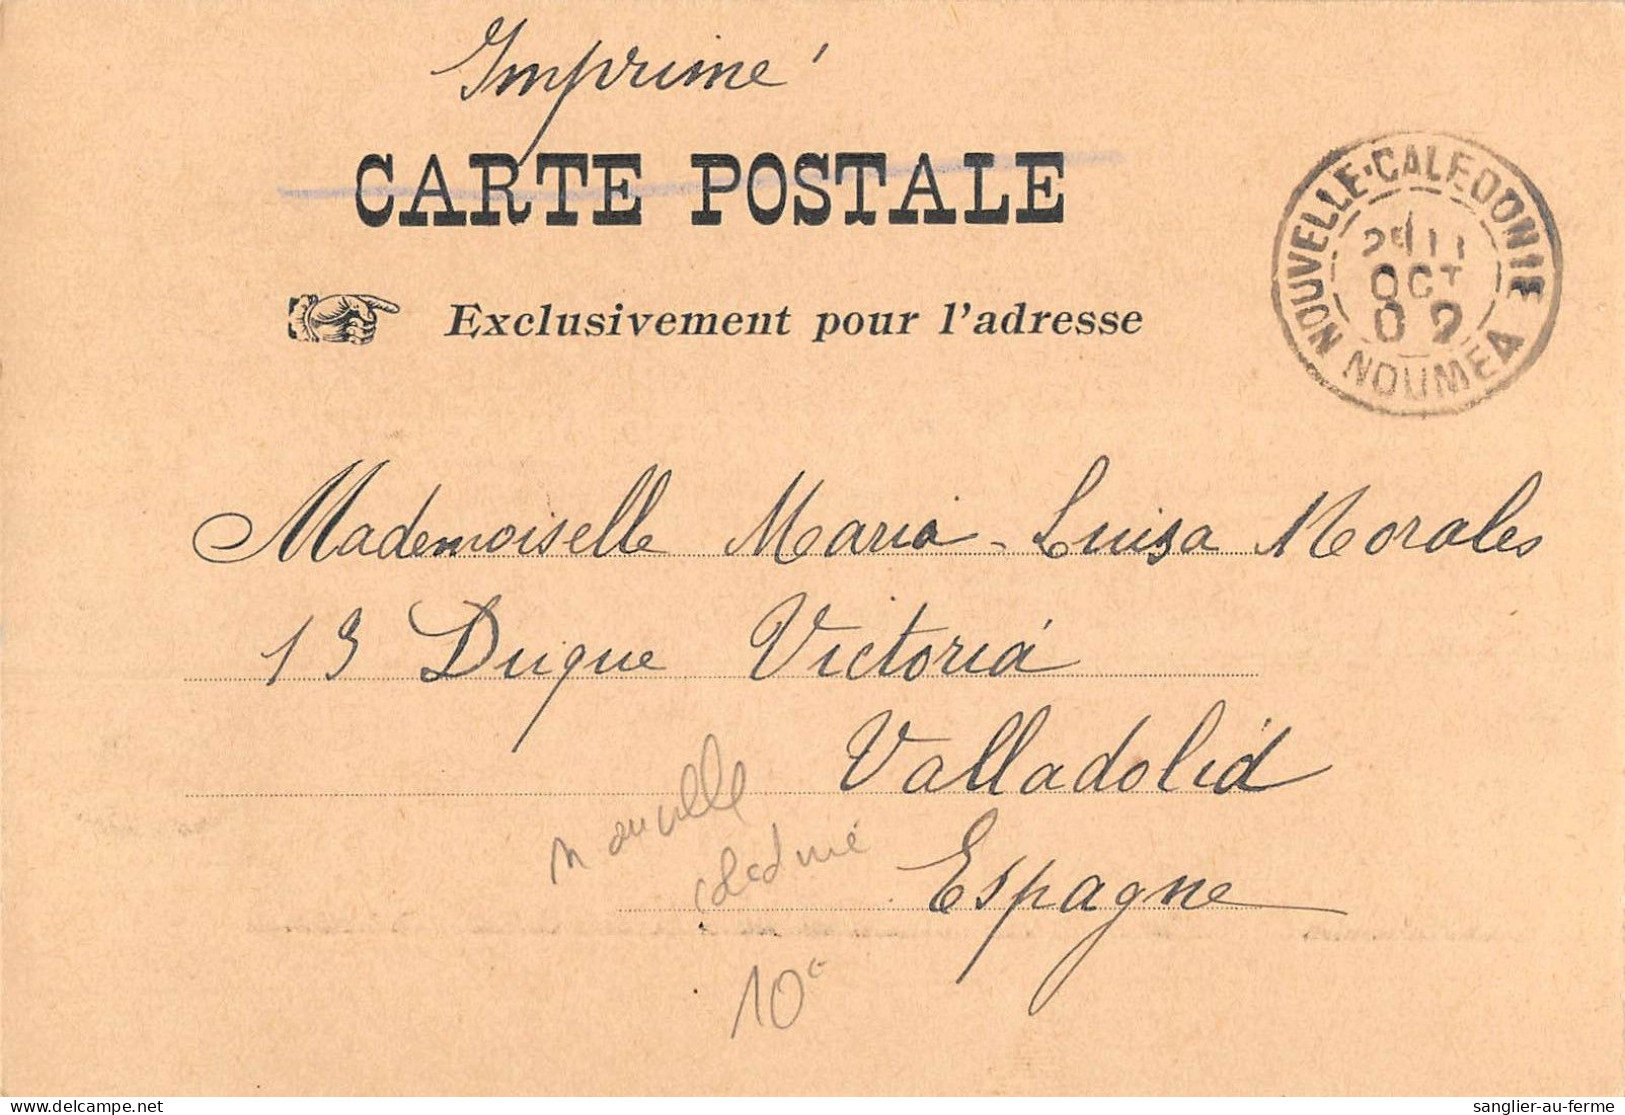 Imprimé
CARTE POSTALE
Exclusivement pour l'adresse
NOUVELLE-CALEDONIE
OCT
NOUMEA
Mademoiselle Maria-Luisa Morales
13 Duque Victoriá
Valladolid
Espagne
nouvelle
10€
sanglier-au-ferme